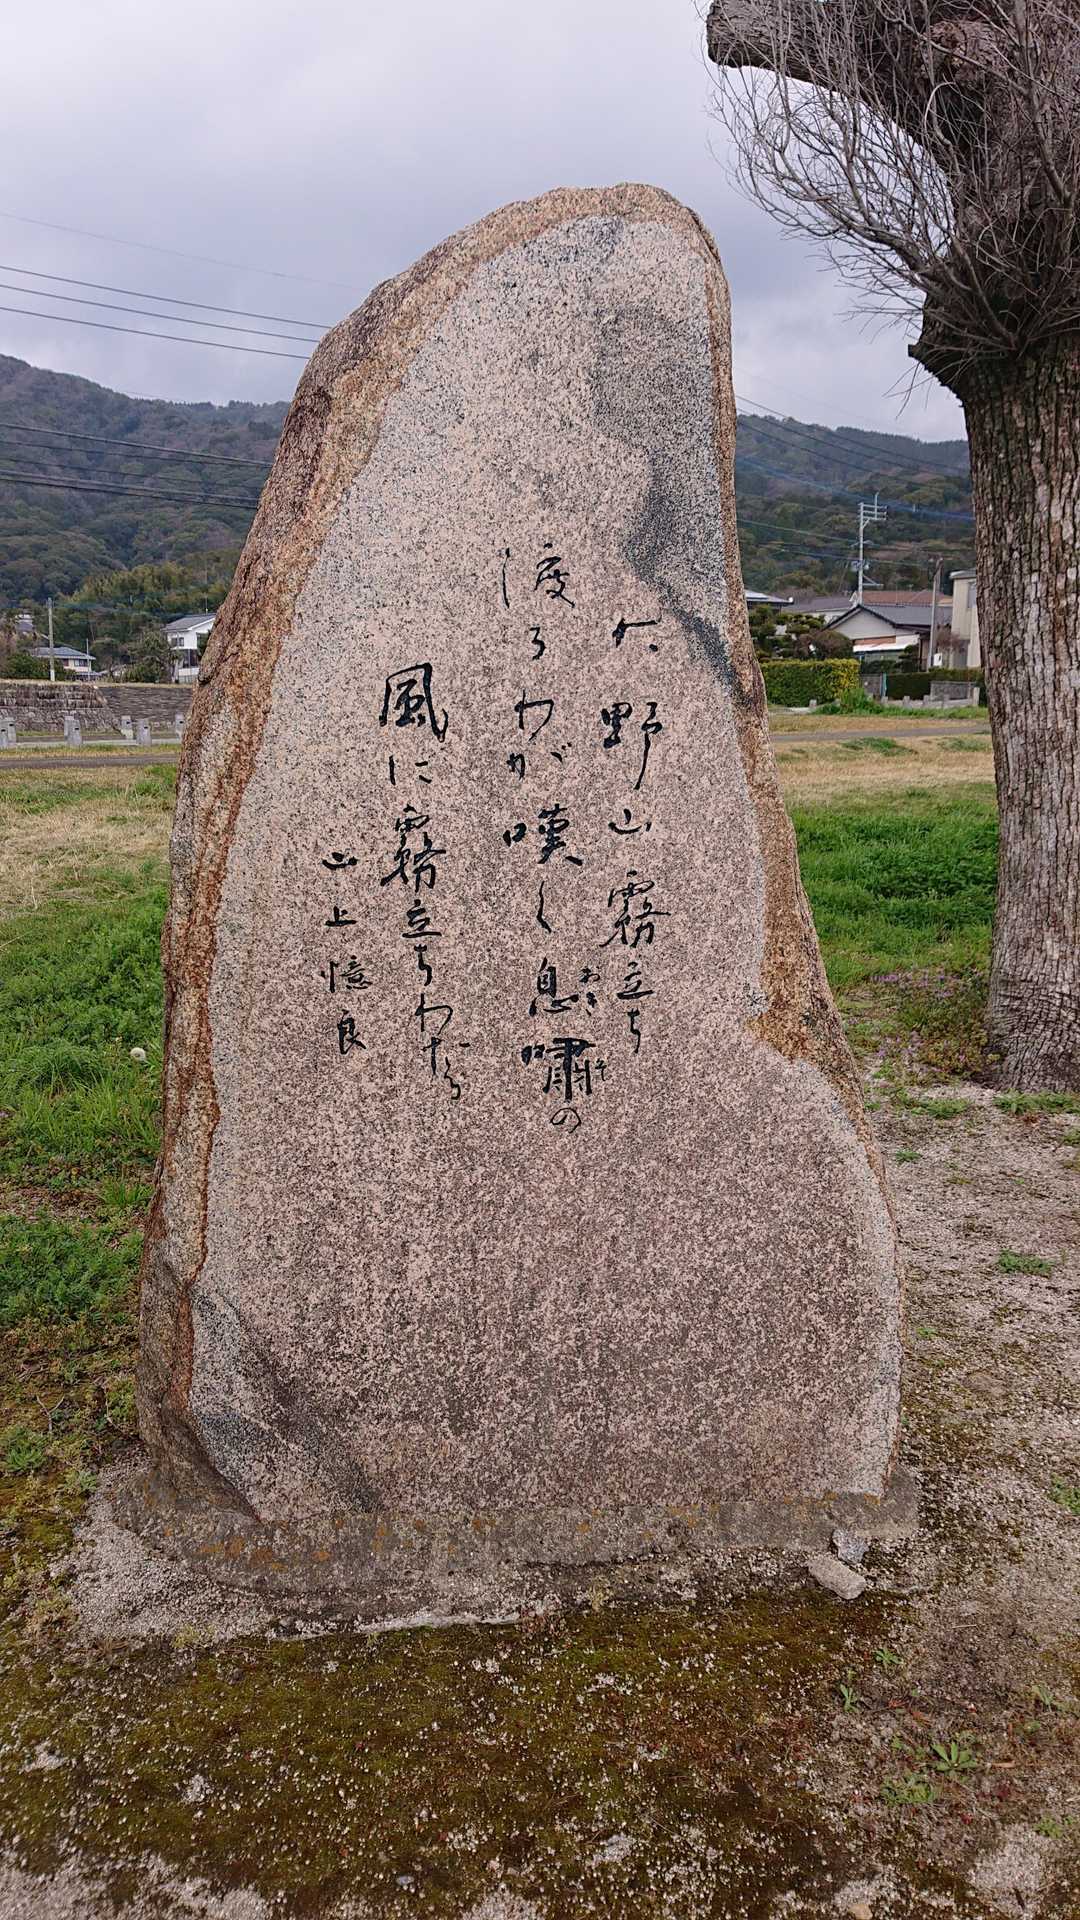 大野山霧立ち
渡るわが嘆く息嘯の
おき
そ
風に霧立ちわたる
山上憶良